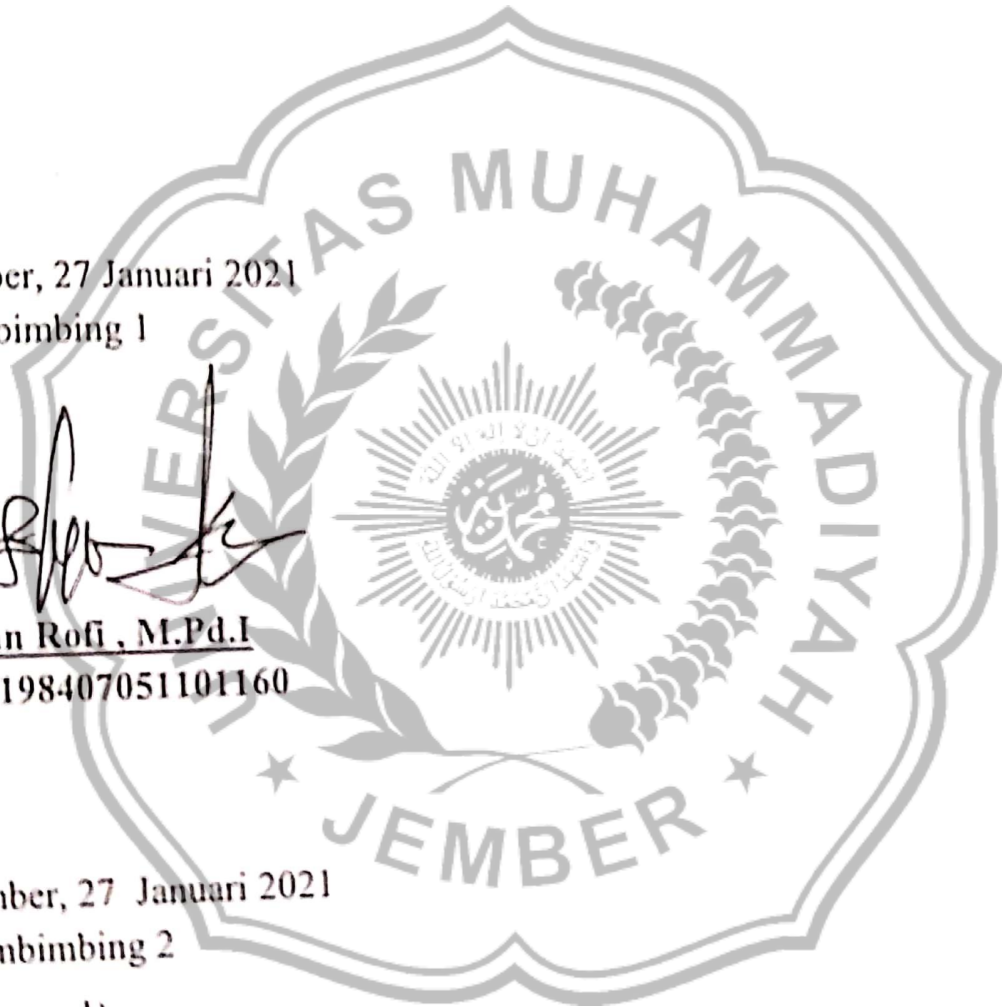 UNIVERSITAS MUHAMMADIYAH
JEMBER
ber, 27 Januari 2021
bimbing 1
n Rofi , M.Pd.I
198407051101160
mber, 27 Januari 2021
mbimbing 2